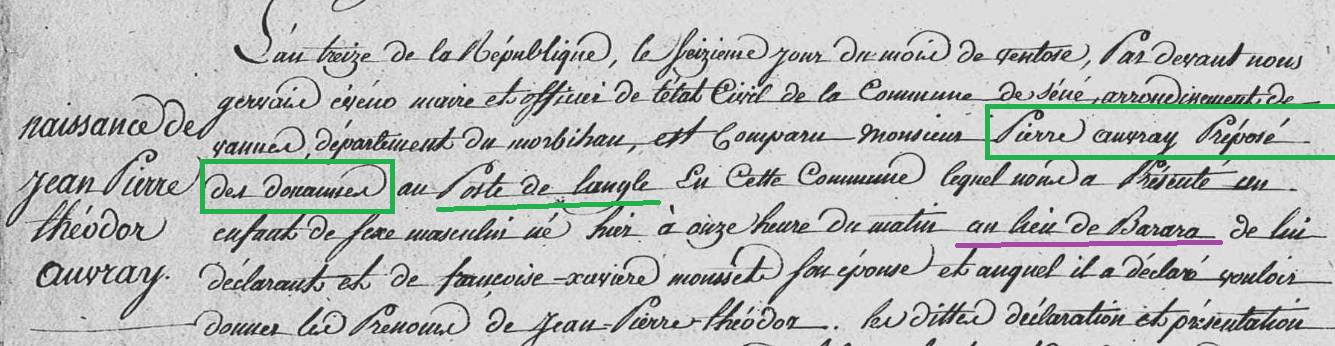 L'an treize de la République, le seizieme jour du mois de ventose, Par devant nous
gervais éveno maire et officier de l'état Civil de la Commune de séné, arrondissement de
naissance de
vannes, département du morbihan, est Comparu Monsieur Pierre auvray Préposé
Jean Pierre
des douannes au Poste de langle En Cette Commune lequel nous a Présenté un
théodor
enfant de sexe masculin né hier à onze heure du matin au lieu de Barara de lui
auvray.
déclarant et de françoise-xaviere mousset son épouse et auquel il a déclaré vouloir
donner les Prenoms de Jean-Pierre-théodor. les dittes déclaration et présentation